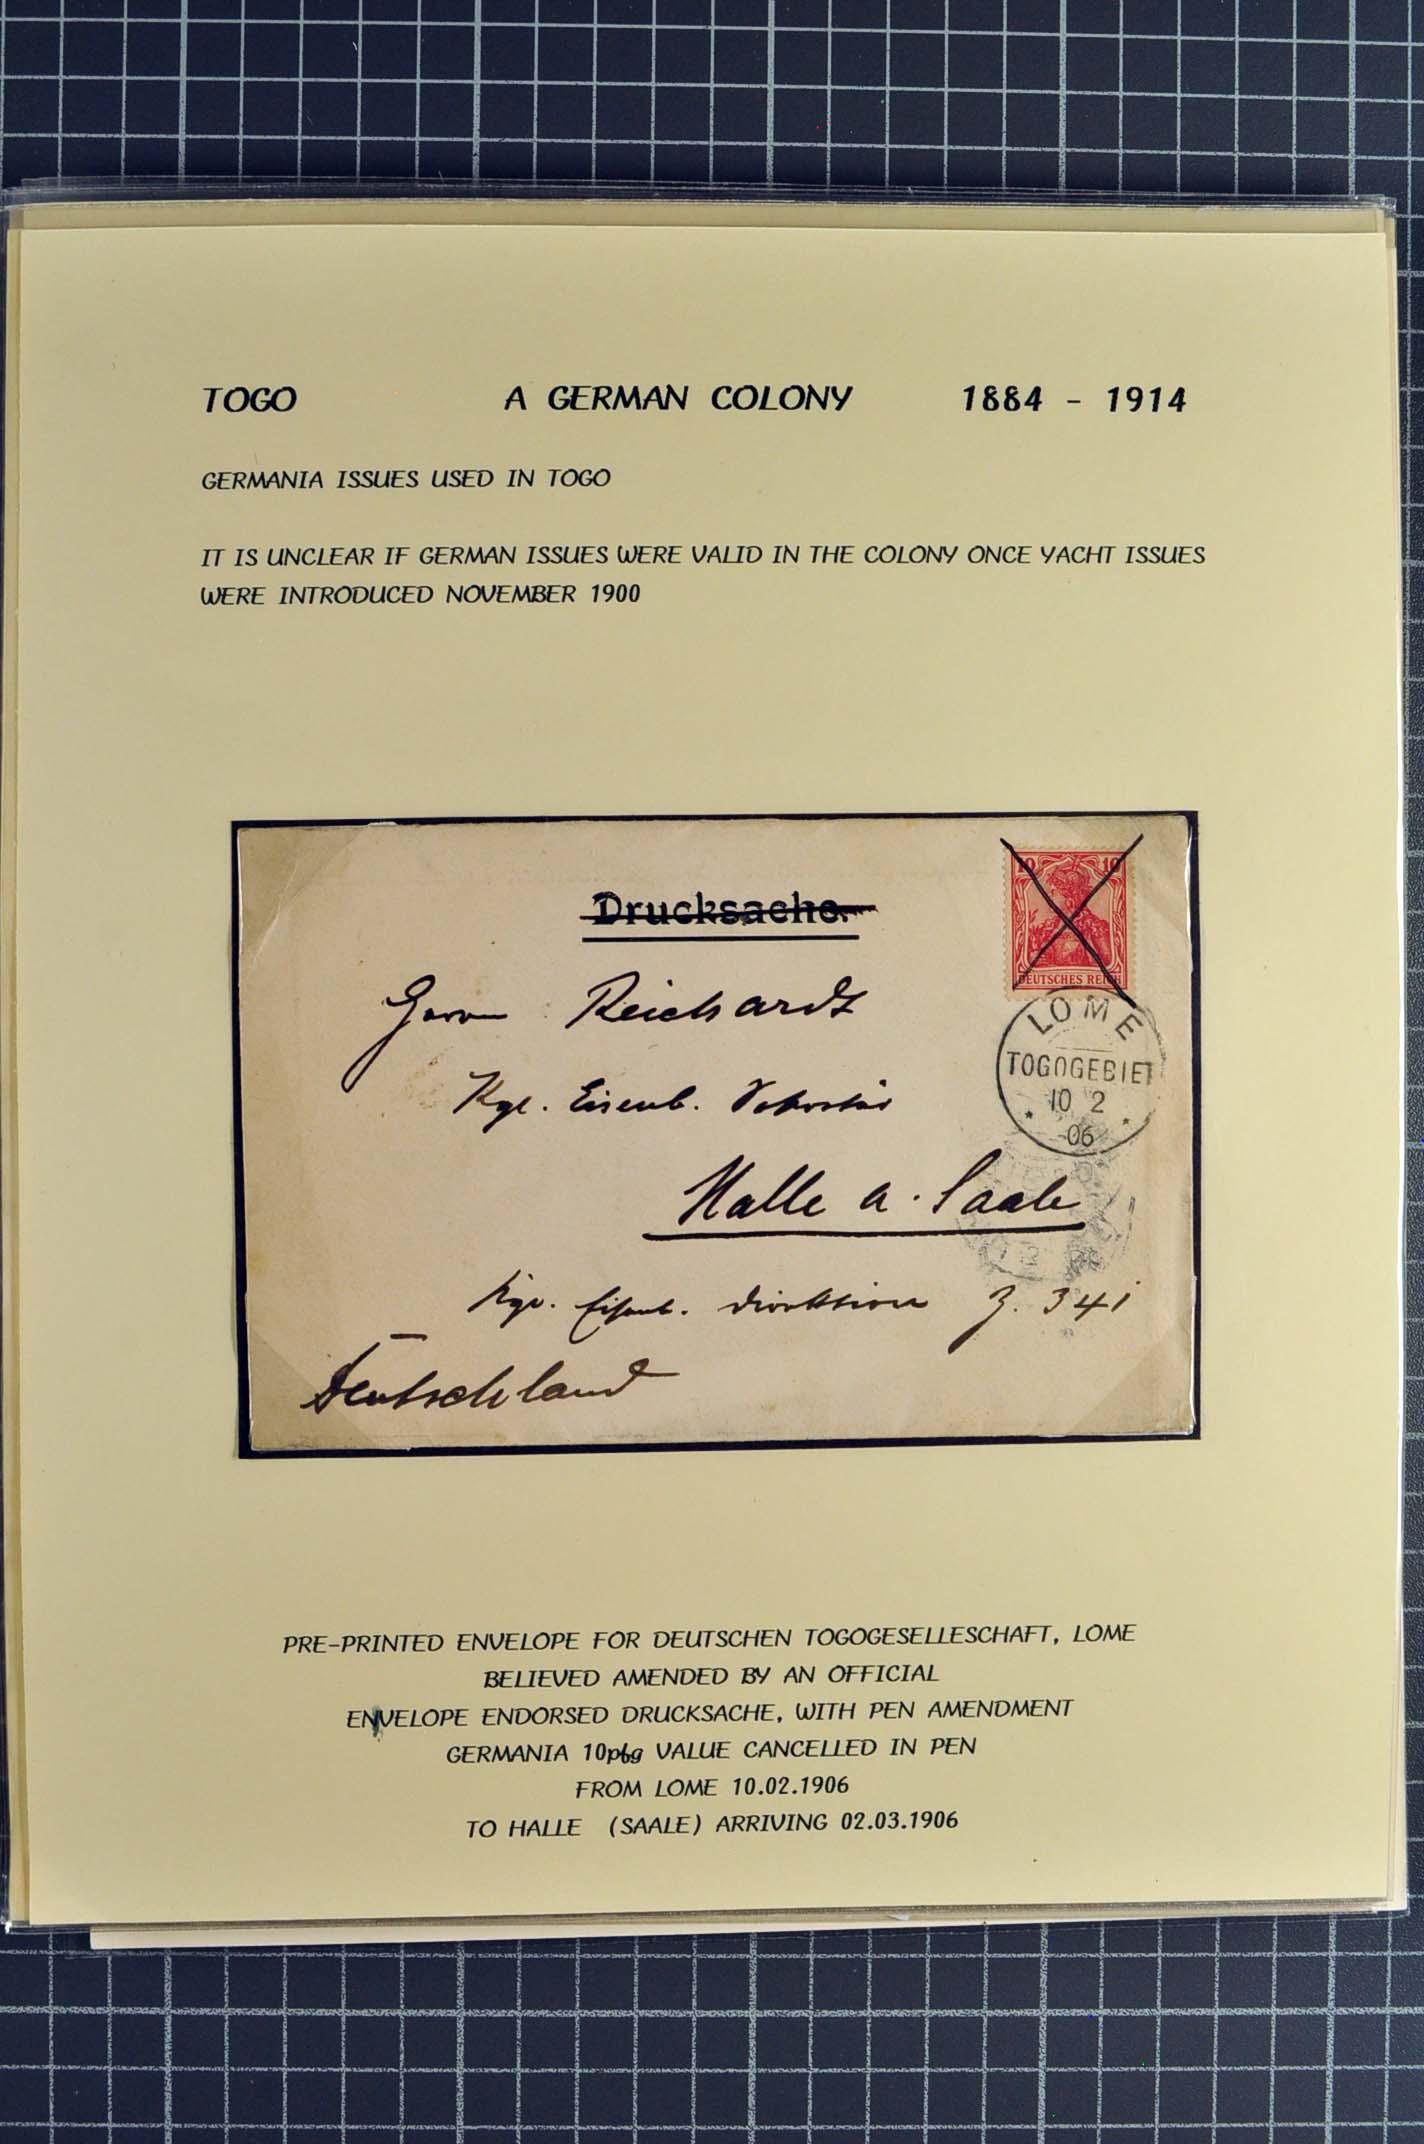 TOGO A GERMAN COLONY 1884 - 1914
GERMANIA ISSUES USED IN TOGO
IT IS UNCLEAR IF GERMAN ISSUES WERE VALID IN THE COLONY ONCE YACHT ISSUES
WERE INTRODUCED NOVEMBER 1900
10 10
DEUTSCHES REICH
Drucksache.
LOME
TOGOGEBIET
10 2
06
Herrn Reichardt
Kgl. Eisenb. Sekretär
Halle a. Saale
Kgl. Eisenb. Direktion Z. 341
Deutschland
PRE-PRINTED ENVELOPE FOR DEUTSCHEN TOGOGESELLESCHAFT, LOME
BELIEVED AMENDED BY AN OFFICIAL
ENVELOPE ENDORSED DRUCKSACHE, WITH PEN AMENDMENT
GERMANIA 10pfg VALUE CANCELLED IN PEN
FROM LOME 10.02.1906
TO HALLE (SAALE) ARRIVING 02.03.1906